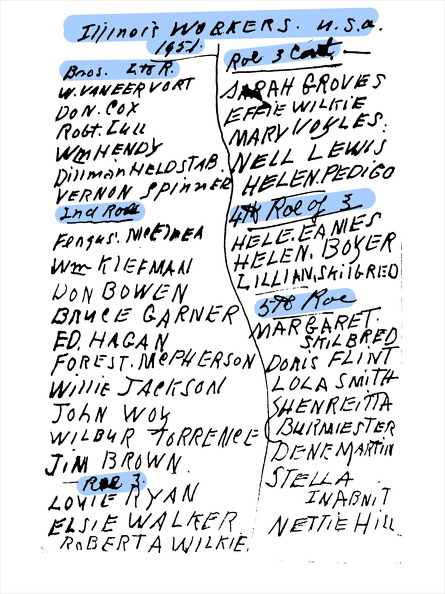 Illinois WORKERS. U.S.A.
1951.
Bros. L to R.
W. VANEERVORT
DON. COX
Robt. Lull
Wm HENDY
Dillman HELDSTAB.
VERNON Spinner
2nd Roe
Fergus. McElrea
Wm KLEEMAN
DON BOWEN
BRUCE GARNER
ED. HAGAN
FOREST. McPHERSON
Willie JACKSON
JOHN WOY
WILBUR TORRENCE
JIM BROWN.
Roe 3.
LOUIE RYAN
ELSIE WALKER
ROBERTA WILKIE.
Roe 3 Cont. —
SARAH GROVES
EFFIE WILKIE
MARY VOYLES.
NELL LEWIS
HELEN. PEDIGO
4th Roe of 3
HELE. EAMES
HELEN. BOYER
LILLIAN. SKilGRED
5th Roe
MARGARET.
SKILBRED
DORIS FLINT
LOLA SMITH
SHENREITTA
BURMIESTER
DENE MARTIN
STELLA
INABNIT
NETTIE Hill